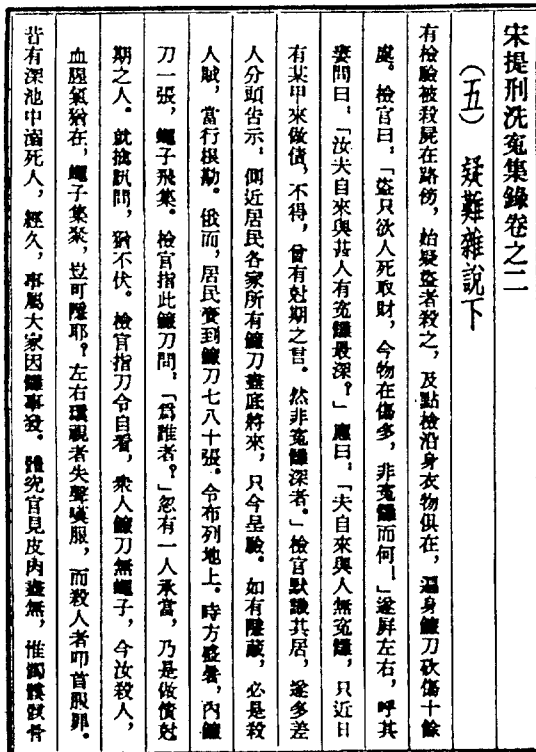 宋提刑洗冤集錄卷之二
（五） 疑難雜說下
有檢驗被殺屍在路傍，始疑盜者殺之，及點檢沿身衣物俱在，遍身鐮刀砍傷十餘
處。檢官曰，「盜只欲人死取財，今物在傷多，非冤讎而何。」遂屏左右，呼其
妻問曰，「汝夫自來與甚人有冤讎最深？」應曰，「夫自來與人無冤讎，只近日
有某甲來做債，不得，曾有尅期之言。然非冤讎深者。」檢官默識其居，遂多差
人分頭告示，側近居民各家所有鐮刀盡底將來，只今呈驗。如有隱藏，必是殺
人賊，當行根勘。俄而，居民賫到鐮刀七八十張。令布列地上。時方盛暑，內鐮
刀一張，蠅子飛集。檢官指此鐮刀問，「爲誰者？」忽有一人承當，乃是做債尅
期之人。就擒訊問，猶不伏。檢官指刀令自看，衆人鐮刀無蠅子，今汝殺人，
血腥氣猶在，蠅子集聚，豈可隱耶？左右環視者失聲嘆服，而殺人者叩首服罪。
昔有深池中溺死人，經久，事屬大家因讎事發。體究官見皮肉盡無，惟髑髏骸骨